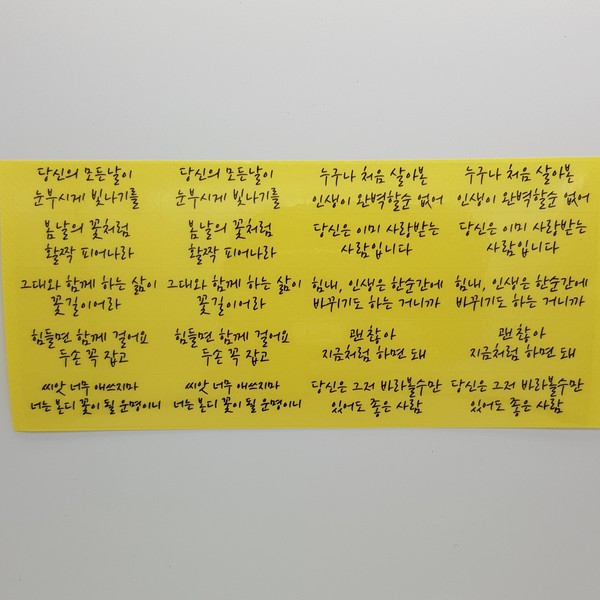 당신의 모든날이
눈부시게 빛나기를
당신의 모든날이
눈부시게 빛나기를
누구나 처음 살아본
인생이 완벽할순 없어
누구나 처음 살아본
인생이 완벽할순 없어
봄날의 꽃처럼
활짝 피어나라
봄날의 꽃처럼
활짝 피어나라
당신은 이미 사랑받는
사람입니다
당신은 이미 사랑받는
사람입니다
그대와 함께 하는 삶이
꽃길이어라
그대와 함께 하는 삶이
꽃길이어라
힘내, 인생은 한순간에
바뀌기도 하는 거니까
힘내, 인생은 한순간에
바뀌기도 하는 거니까
힘들면 함께 걸어요
두손 꼭 잡고
힘들면 함께 걸어요
두손 꼭 잡고
괜찮아
지금처럼 하면 돼
괜찮아
지금처럼 하면 돼
씨앗 너무 애쓰지마
너는 본디 꽃이 될 운명이니
씨앗 너무 애쓰지마
너는 본디 꽃이 될 운명이니
당신은 그저 바라볼수만
있어도 좋은 사람
당신은 그저 바라볼수만
있어도 좋은 사람